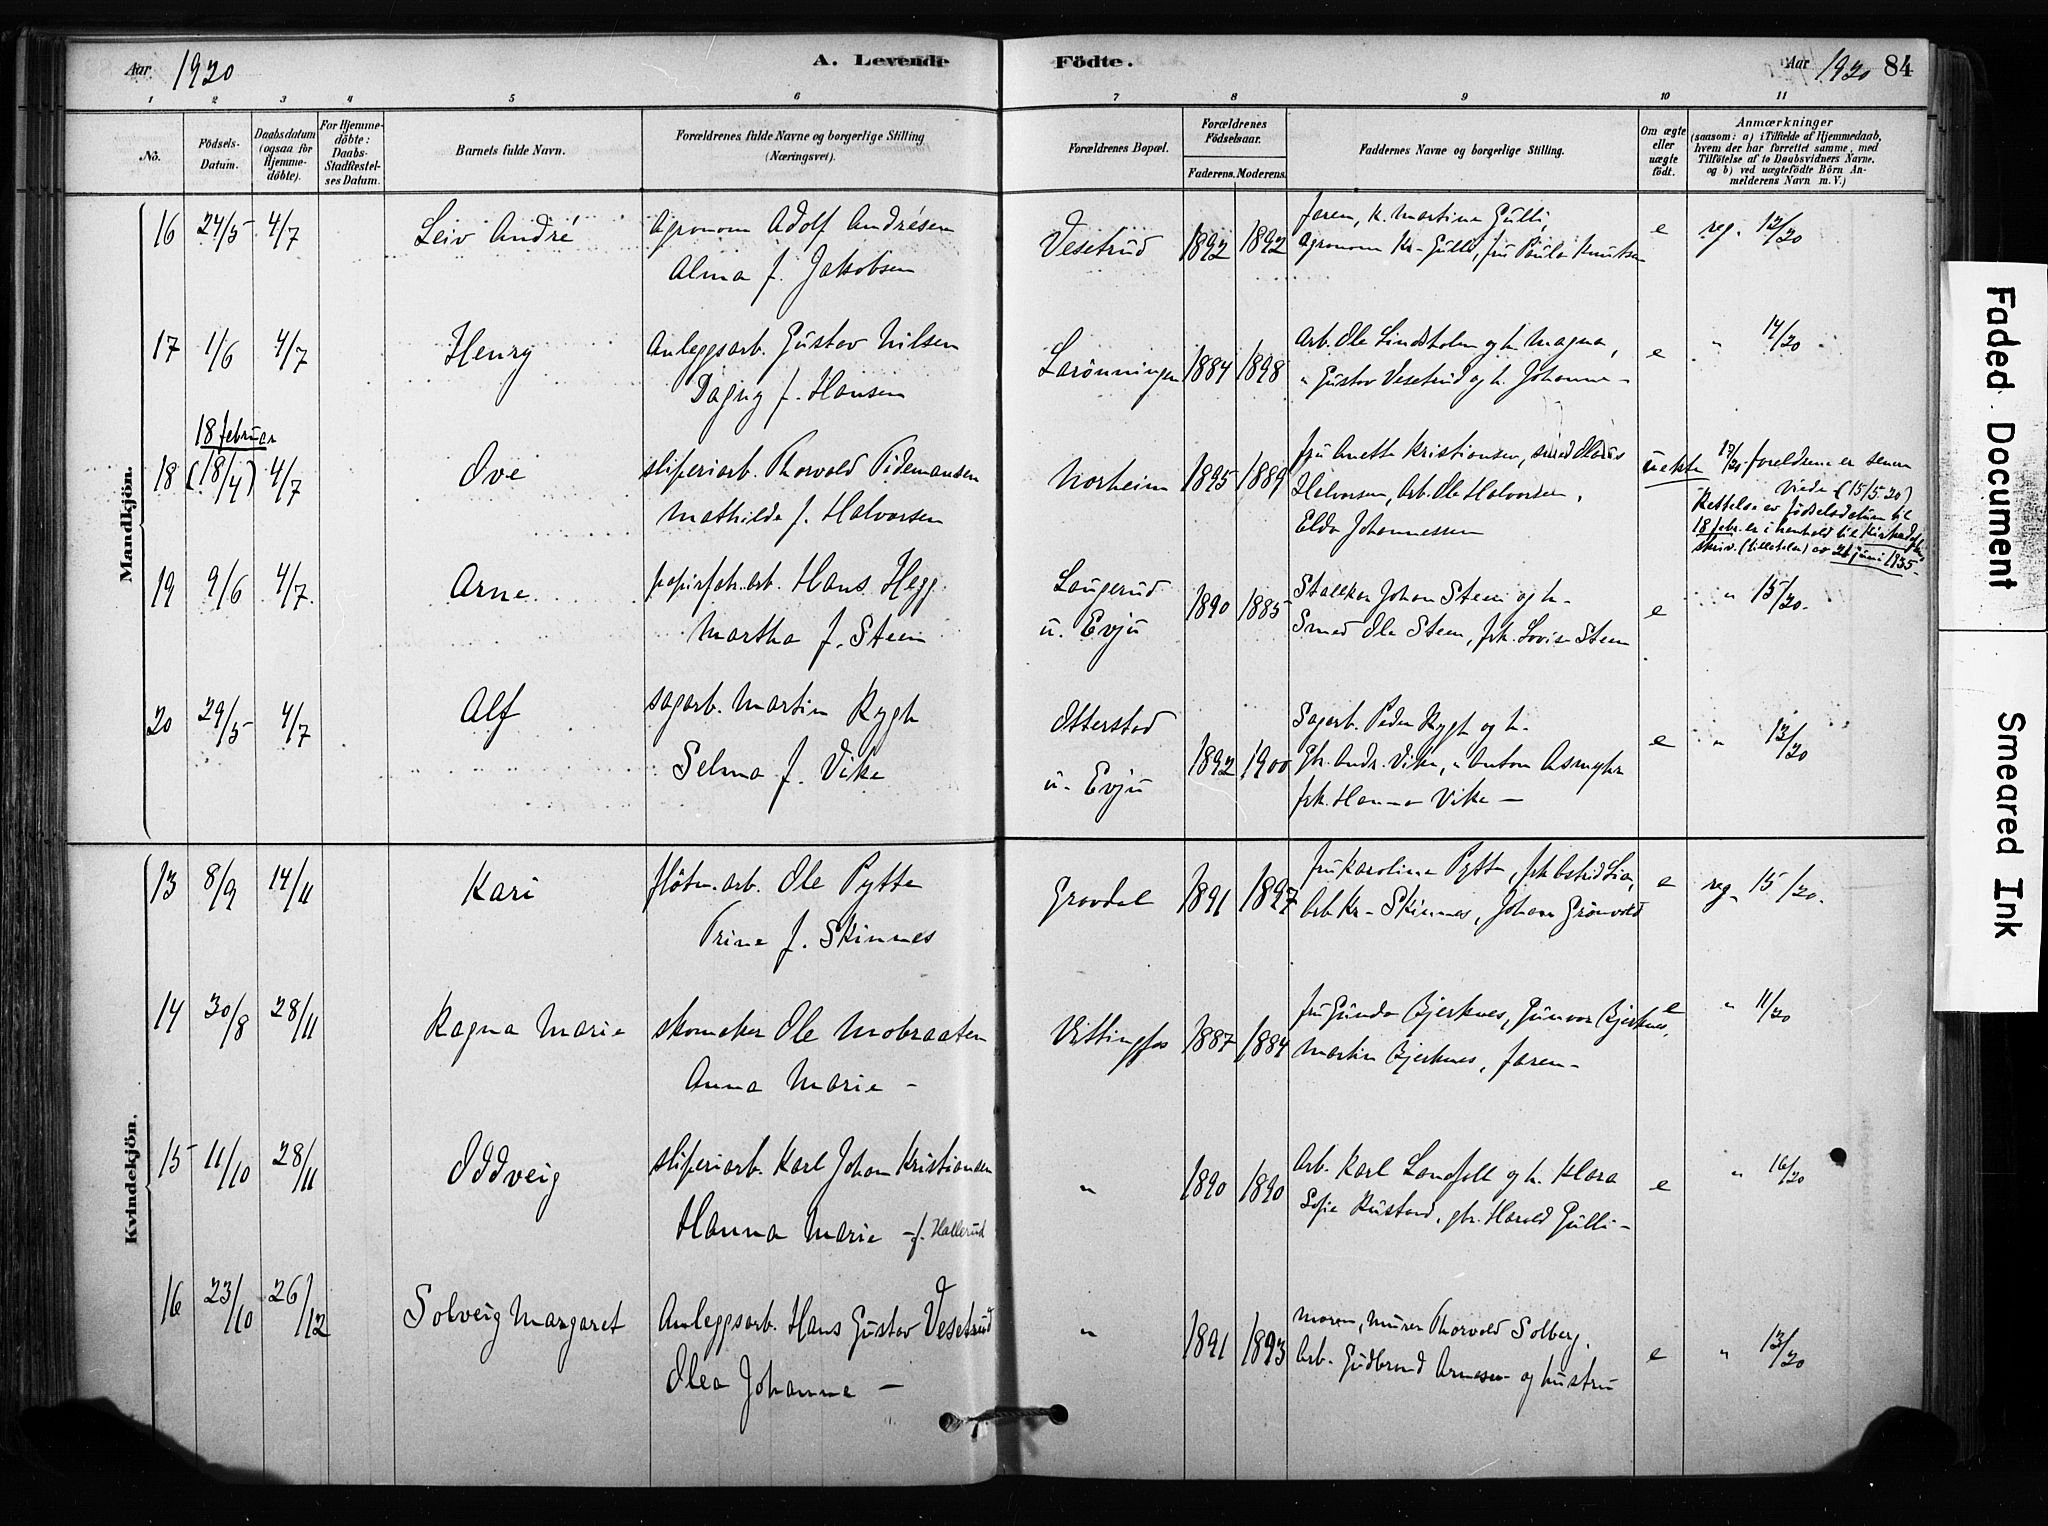 Aar 1920 A. Levende Födte. Aar 1920 84
1 2 3 4 5 6 7 8 9 10 11
No. Födsels-Datum. Daabsdatum (ogsaa for Hjemmedöbte). For Hjemmedöbte: Daabs-Stadfestelses Datum. Barnets fulde Navn. Forældrenes fulde Navne og borgerlige Stilling (Næringsvei). Forældrenes Bopæl. Forældrenes Födselsaar. Faderens. Moderens. Faddernes Navne og borgerlige Stilling. Om ægte eller uægte födt. Anmærkninger (saasom: a) i Tilfælde af Hjemmedaab, hvem der har forrettet samme, med Tilföielse af to Daabsvidners Navne, og b) ved uægtefödte Börn Anmelderens Navn m. V.)
Mandkjön.
16 24/5 4/7 Leiv André Agronom Adolf Andrésen Vesetrud 1892 1892 faren, k. Martina Gulli, e reg. 12/20
Alma f. Jakobsen agronom Kr. Gulli, fru Paula Knutsen
17 1/6 4/7 Henry Anleggsarb. Gustav Nilsen Larönningen 1884 1898 Arb. Ole Lindholm og h. Magna, e " 14/20
Dagny f. Hansen " Gustov Vesetrud og h. Johanne -
18 februar
18 (18/4) 4/7 Ove sliperiarb. Thorvald Tidemansen Norheim 1895 1889 fru Anette Kristiansen, uekte 17/20 foreldrene er senere
Mathilde f. Halvorsen Halvorsen, Arb. Ole Halvorsen, viede (15/5 20)
Elda Johannessen Rettelse av födselsdatum til
18 febr. er i henhold til
skriv. (tillatelse) av 21 juni 1935-
19 9/6 4/7 Arne papirfab.arb. Hans Hegg Laugerud 1890 1885 Johan Steen og h. e " 15/20.
Martha f. Steen u. Evju Smed Ole Steen, frk. Lovise Steen
20 29/5 4/7 Alf sagarb. Martin Rygh Otterstad 1892 1900 Sagarb. Peder Rygh og h. e " 13/20
Selma f. Vike u. Evju Andr. Vike, " Anton
frk. Hanna Vike -
Kvindekjön.
13 8/9 14/11 Kari flöter.arb. Ole Pytte Gravdal 1891 1897 fru Karoline Pytte, frk Astrid Lia, e reg. 15/20.
Trine f. Skinnes Arb. Kr. Skinnes, Johan Grönvold
14 30/8 28/11 Ragna Marie skomaker Ole Mobraaten Vittingfos 1887 1884 fru Gunda Bjerknes, Gunvor Bjerknes, e " 11/20
Anna Marie - Martin Bjerknes, faren-
15 11/10 28/11 Oddveig sliperiarb. Karl Johan Kristiansen " 1890 1890 Arb. Karl Landfall og h. Klara e " 16/20
Hanna Marie - f. Hallerud Sofie Rustand, gbr. Harald Gulli -
16 23/10 26/12 Solveig Margaret Anleggsarb. Hans Gustav Vesetrud " 1891 1893 moren, murer Thorvald Solberg, e " 13/20
Olea Johanne - Arb. Gudbrand Arnesen og hustru
Faded Document
Smeared Ink